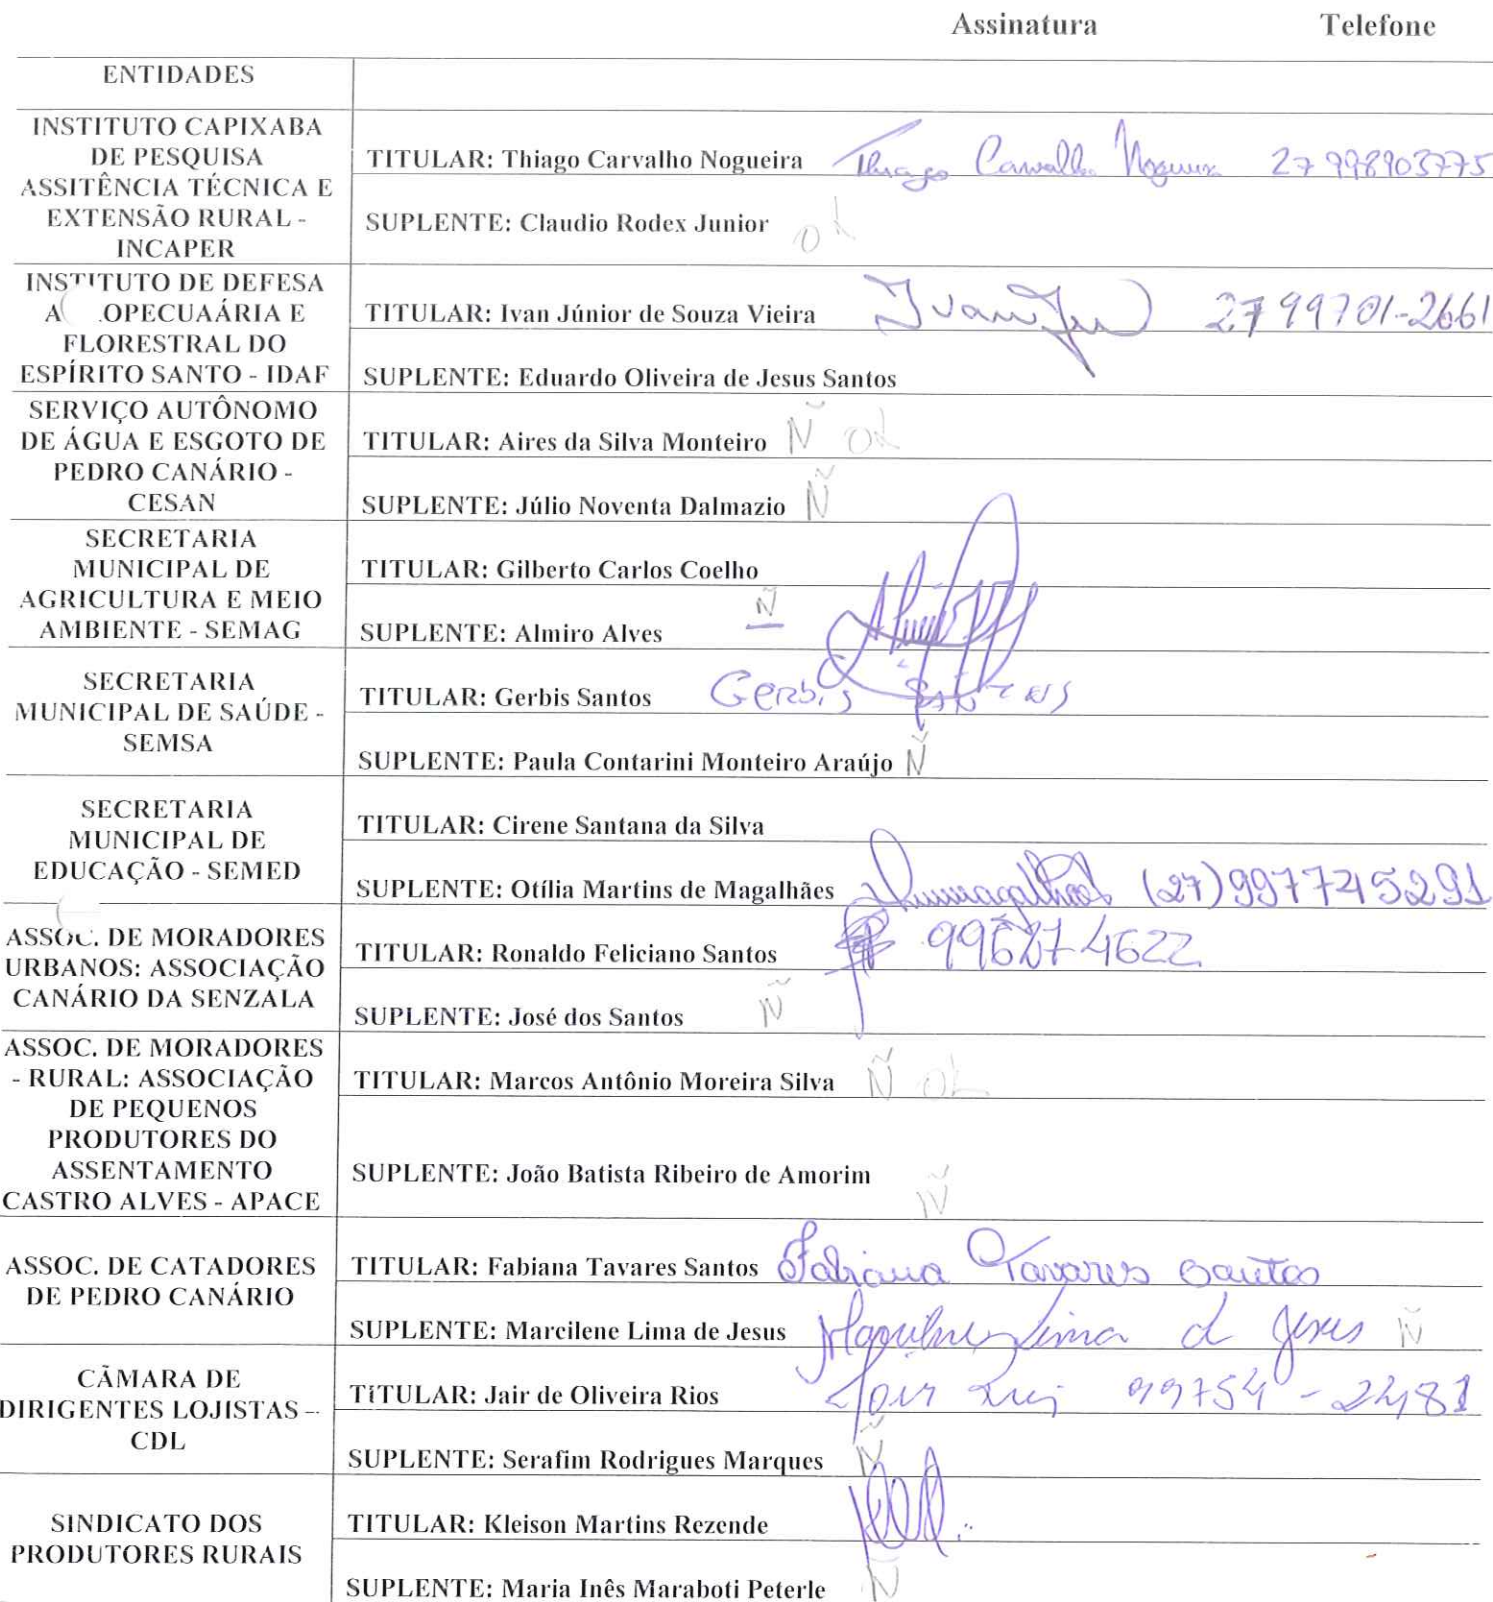 Assinatura Telefone
ENTIDADES
INSTITUTO CAPIXABA
DE PESQUISA
ASSITÊNCIA TÉCNICA E
EXTENSÃO RURAL -
INCAPER
TITULAR: Thiago Carvalho Nogueira Thiago Carvalho Nogueira 27 998903775
SUPLENTE: Claudio Rodex Junior ok
INSTITUTO DE DEFESA
A OPECUAÁRIA E
FLORESTRAL DO
ESPÍRITO SANTO - IDAF
TITULAR: Ivan Júnior de Souza Vieira Ivan Jr 27 99701-2661
SUPLENTE: Eduardo Oliveira de Jesus Santos
SERVIÇO AUTÔNOMO
DE ÁGUA E ESGOTO DE
PEDRO CANÁRIO -
CESAN
TITULAR: Aires da Silva Monteiro Ñ ok
SUPLENTE: Júlio Noventa Dalmazio Ñ
SECRETARIA
MUNICIPAL DE
AGRICULTURA E MEIO
AMBIENTE - SEMAG
TITULAR: Gilberto Carlos Coelho
SUPLENTE: Almiro Alves Ñ
SECRETARIA
MUNICIPAL DE SAÚDE -
SEMSA
TITULAR: Gerbis Santos Gerbis Santos
SUPLENTE: Paula Contarini Monteiro Araújo Ñ
SECRETARIA
MUNICIPAL DE
EDUCAÇÃO - SEMED
TITULAR: Cirene Santana da Silva
SUPLENTE: Otília Martins de Magalhães (27)997745291
ASSOC. DE MORADORES
URBANOS: ASSOCIAÇÃO
CANÁRIO DA SENZALA
TITULAR: Ronaldo Feliciano Santos
SUPLENTE: José dos Santos Ñ
ASSOC. DE MORADORES
- RURAL: ASSOCIAÇÃO
DE PEQUENOS
PRODUTORES DO
ASSENTAMENTO
CASTRO ALVES - APACE
TITULAR: Marcos Antônio Moreira Silva Ñ ok
SUPLENTE: João Batista Ribeiro de Amorim Ñ
ASSOC. DE CATADORES
DE PEDRO CANÁRIO
TITULAR: Fabiana Tavares Santos Fabiana Tavares Santos
SUPLENTE: Marcilene Lima de Jesus Marcilene Lima d Jesus Ñ
CÂMARA DE
DIRIGENTES LOJISTAS –
CDL
TITULAR: Jair de Oliveira Rios Jair 99754-2481
SUPLENTE: Serafim Rodrigues Marques Ñ
SINDICATO DOS
PRODUTORES RURAIS
TITULAR: Kleison Martins Rezende
SUPLENTE: Maria Inês Maraboti Peterle Ñ